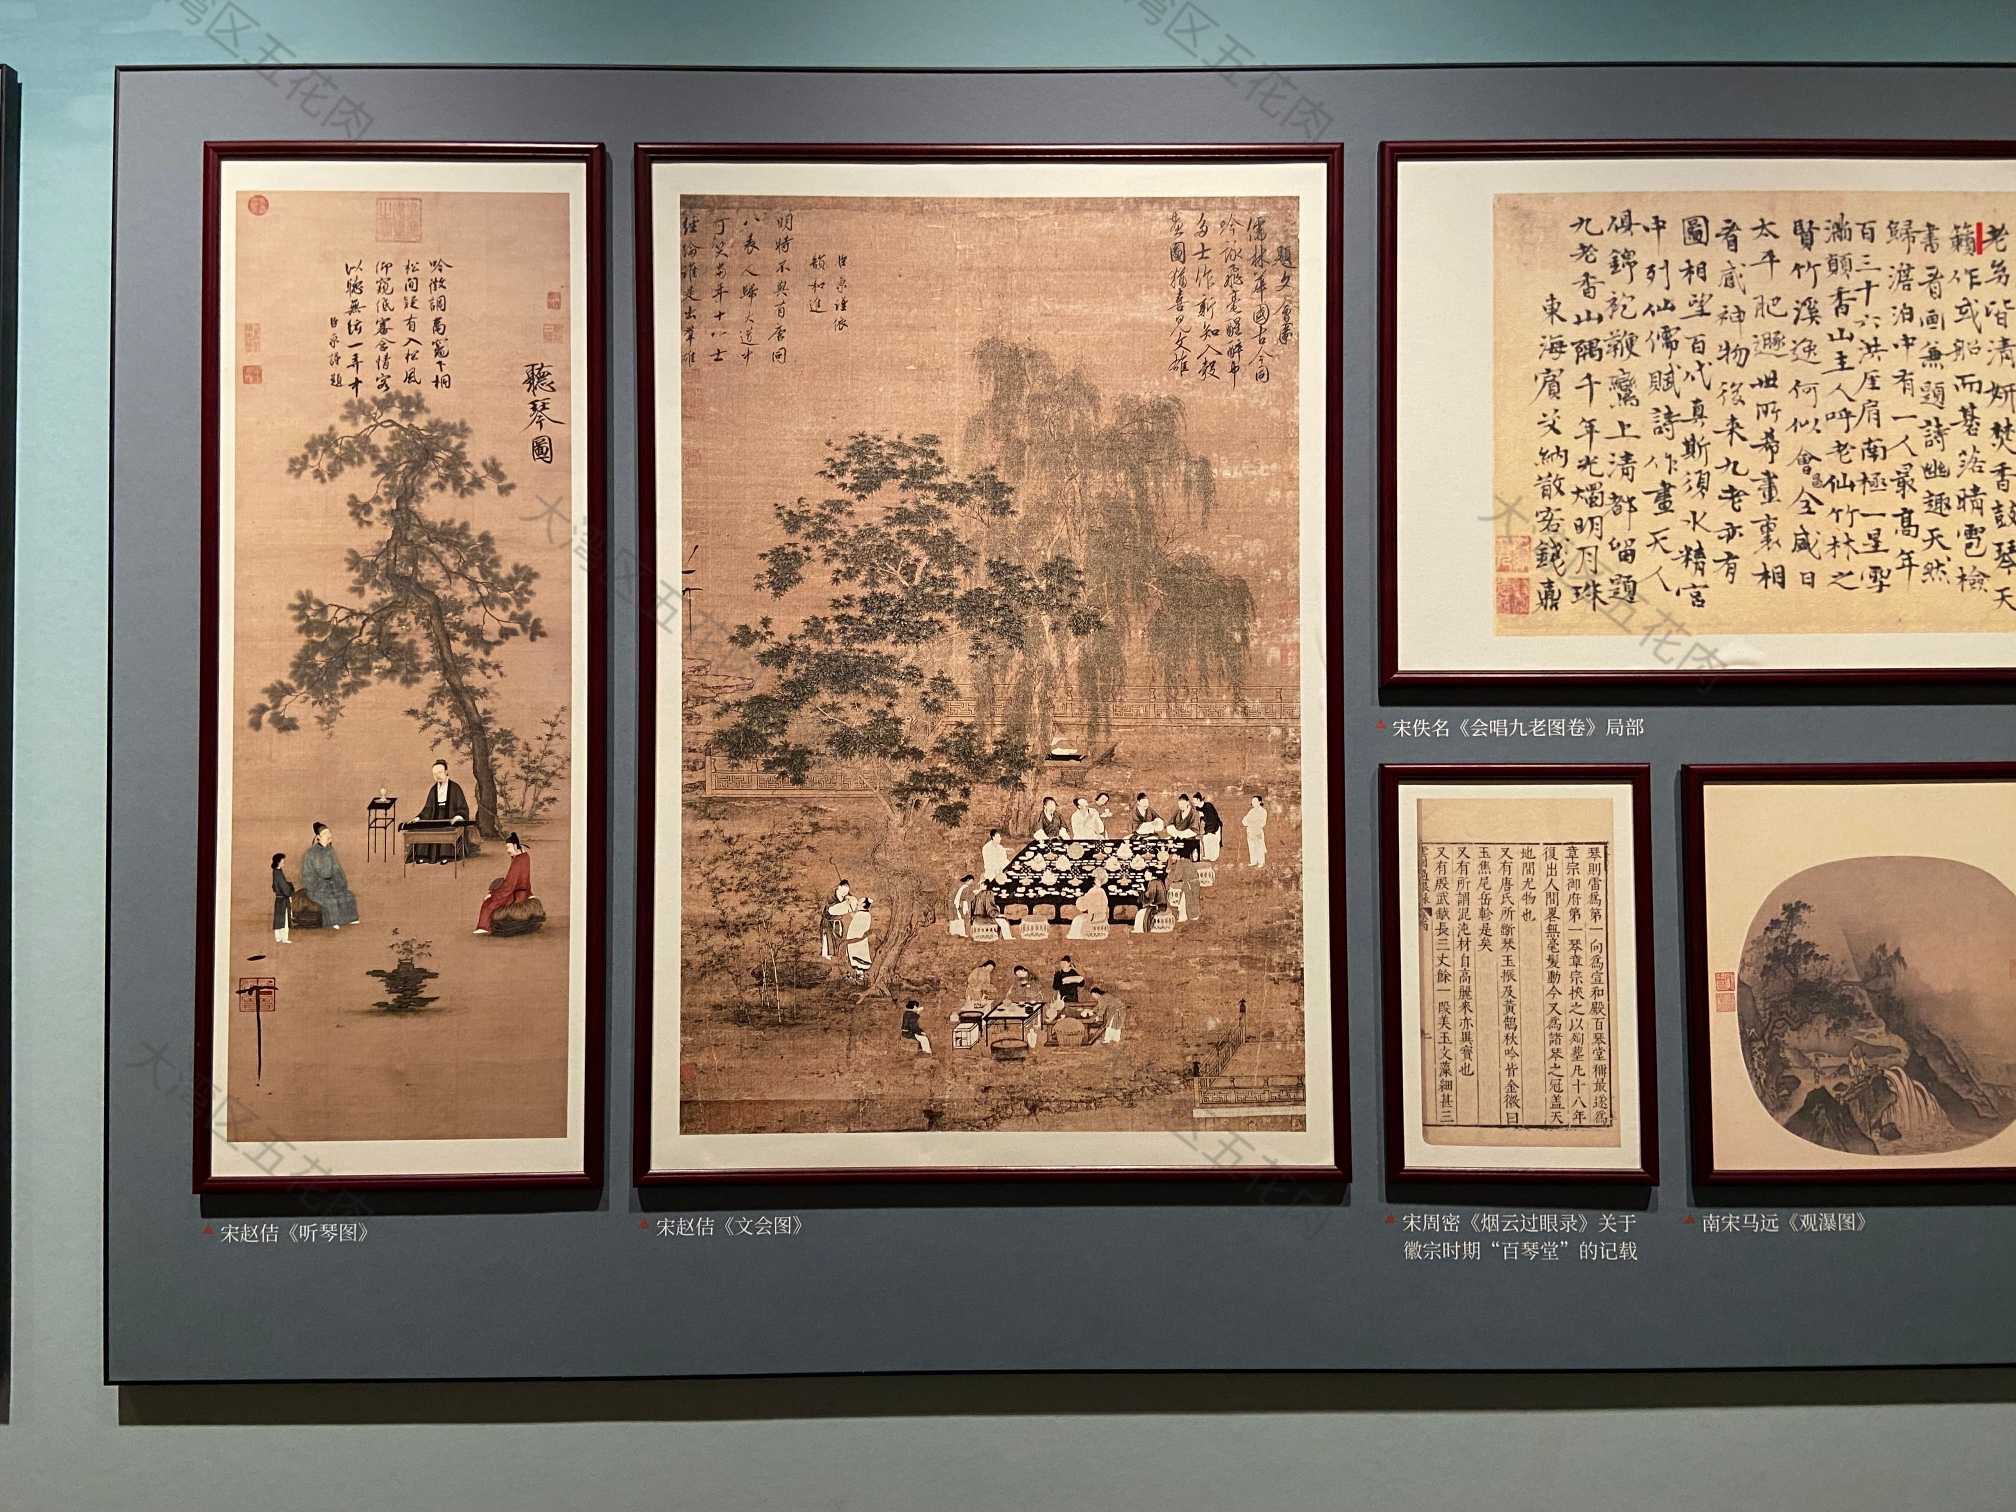 聽琴圖
吟徵調商竈下桐
松間疑有入松風
仰窺低審含情客
以聽無絃一弄中
臣京謹題
宋赵佶《听琴图》
題文會圖
儒林華國古今同
吟詠飛毫醒醉中
多士作新知入彀
畫圖猶喜見文雄
臣京謹依
韻和進
明時不與有唐同
八表人歸大道中
可笑當年十八士
經綸誰是出羣雄
宋赵佶《文会图》
皆清妍焚香鼓琴天
籟作或船而棊落晴雹檢
書看画兼題詩幽趣天然
歸澹泊中有一人最高年
百三十六洪厓肩南極一星
滿顛香山主人呼老仙竹林之
賢竹溪逸何似會昌全盛日
太平肥遯世所希畫裏相
看感神物後来九老亦有
圖相望百代真斯須水精宮
中列仙儒賦詩作畫天人
俱錦袍鞭鸞上清都留題
九老香山隅千年光燭明月珠
東海賓父納散客錢鼒
宋佚名《会唱九老图卷》局部
琴則雷為第一向為宣和殿百琴堂稱最遂為
章宗御府第一琴章宗挾之以殉塟凡十八年
復出人間畧無毫髮動今又為諸琴之冠盖天
地間尤物也
又有唐氏所斷琴玉振及黃鵠秋吟皆金徽曰
玉焦尾岳軫是矣
又有所謂混沌材自高麗来亦異寶也
又有殷武鉞長三丈餘一段美玉文藻細甚三
宋周密《烟云过眼录》关于
徽宗时期“百琴堂”的记载
南宋马远《观瀑图》
大湾区五花肉
大湾区五花肉
大湾区五花肉
大湾区五花肉